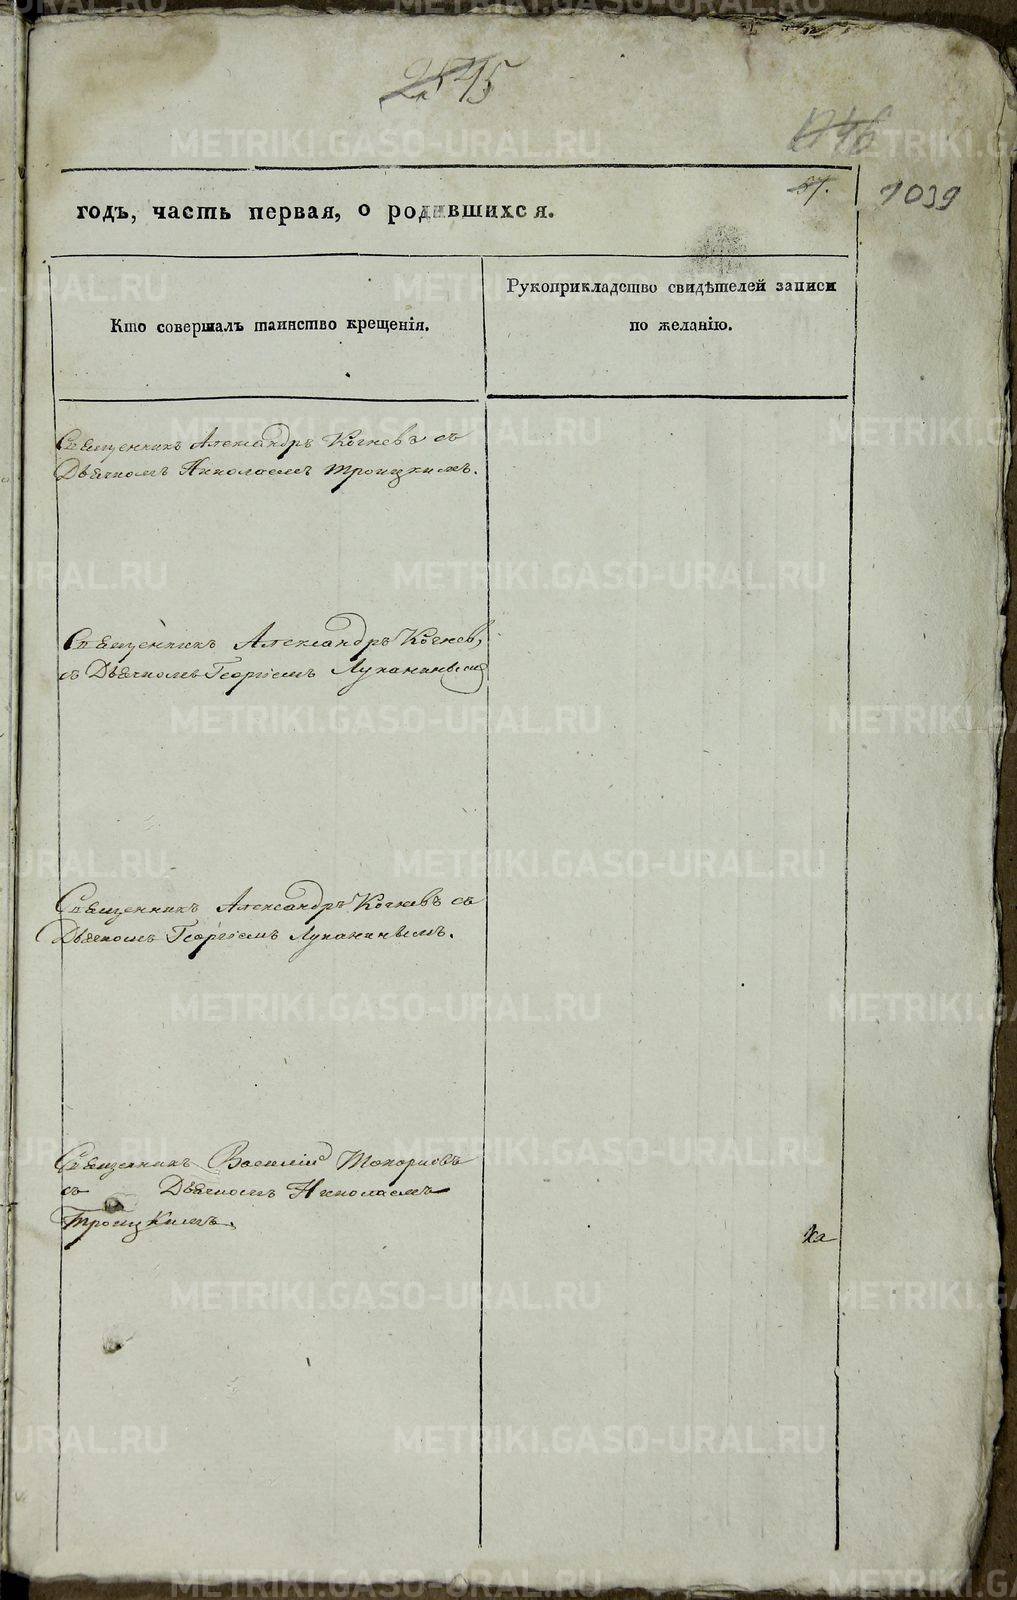 2545
1746
57.
1039
годъ, часть первая, о родившихся.
Кто совершалъ таинство крещенія.
Рукоприкладство свидѣтелей записи
по желанію.
Священникъ Александръ Кочневъ съ
Дьячкомъ Николаемъ Троицкимъ.
Священникъ Александръ Кочневъ,
съ Дьячкомъ Георгіемъ Луканинымъ
Священникъ Александръ Кочневъ съ
Дьячкомъ Георгіемъ Луканинымъ.
Священникъ Василій Токаревъ
съ Дьячкомъ Николаемъ
Троицкимъ.
METRIKI.GASO-URAL.RU